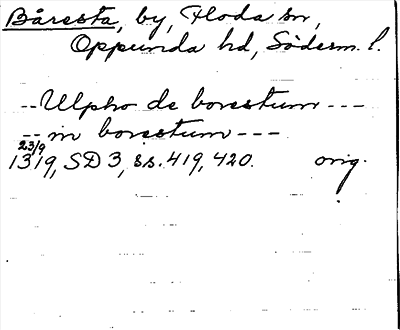 Båresta, by, Floda sn,
Oppunda hd, Söderm. l.
-- Ulpho de borestum ---
-- in borestum ---
23/9
1319, SD 3, s.s. 419, 420. orig.